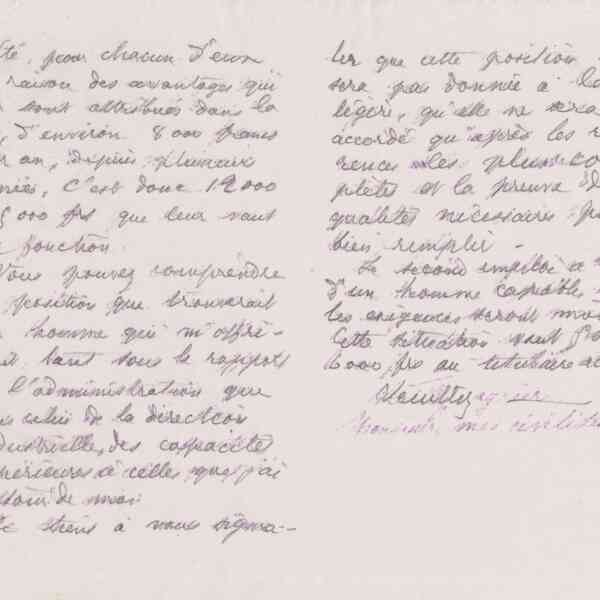 té, pour chacun d'eux
raison des avantages qui
sont attribués dans la
, d'environ 8000 francs
r an, depuis plusieurs
nées, c'est donc 12000
5000 frs que leur vaut
fonction.
Vous pouvez comprendre
position que trouverait
homme qui m'offri-
it tant sous le rapport
l'administration que
celui de la direction
dustrielle, des capacités
périeures à celles que j'ai
tour de moi.
Je tiens à vous signa-
ler que cette position
sera pas donnée à la
légère, qu'elle ne sera
accordé qu'après les r
rences les plus co
plètes et la preuve d
qualités nécessaires p
bien remplir -
Le second emploi a
d'un homme capable
les exigences seront moi
Cette situation vaut
6000 frs au titulaire ac
mes civilités